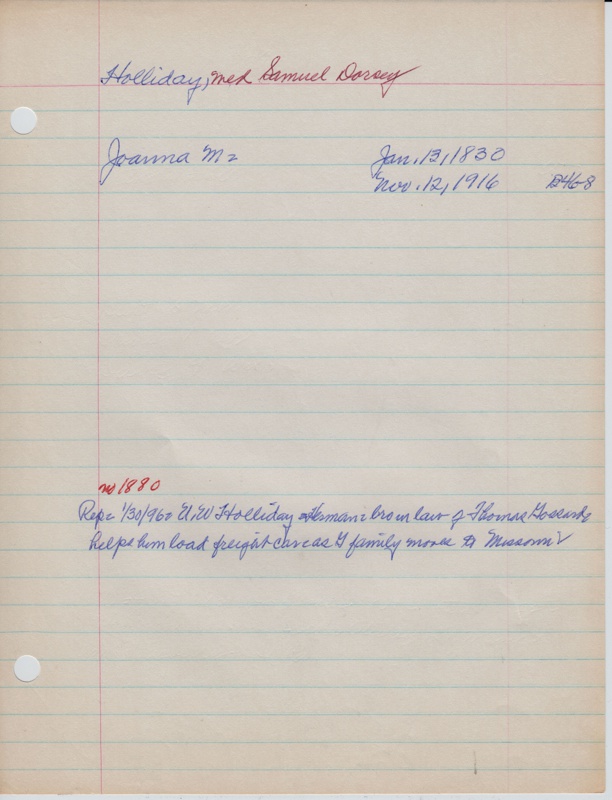 Holliday, med Samuel Dorsey
Joanna M=
Jan. 13, 1830
Nov. 12, 1916 B46-8
no 1880
Rep= 1/30/96= U.W Holliday = Herman= bro in law of Thomas
helps him load freight car as G family moves to Missouri